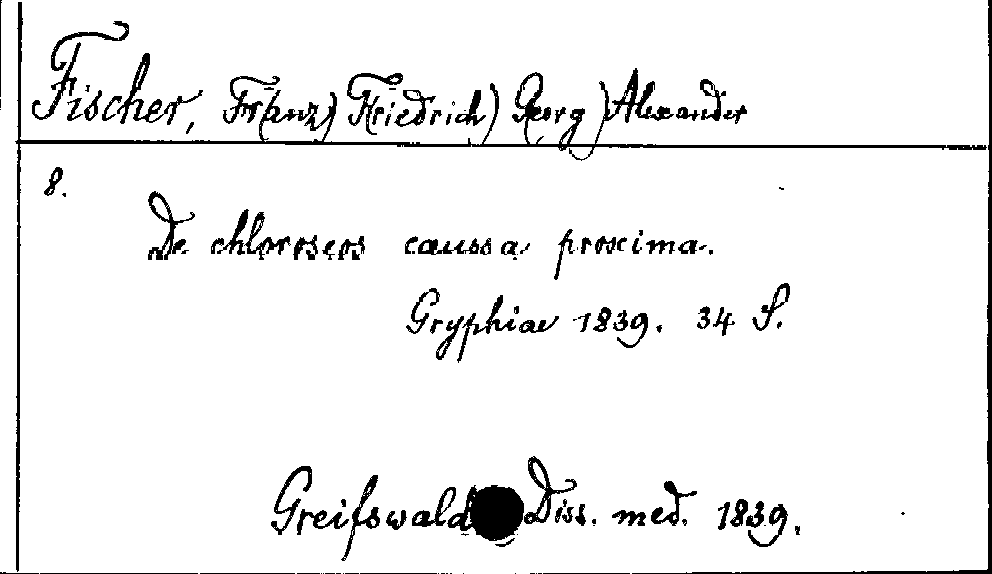 Fischer, Fr(anz) F(riedrich) G(eorg) Alexander
8.
De chloroseos caussa proxima.
Gryphiae 1839. 34 S.
Greifswald Diss. med. 1839.